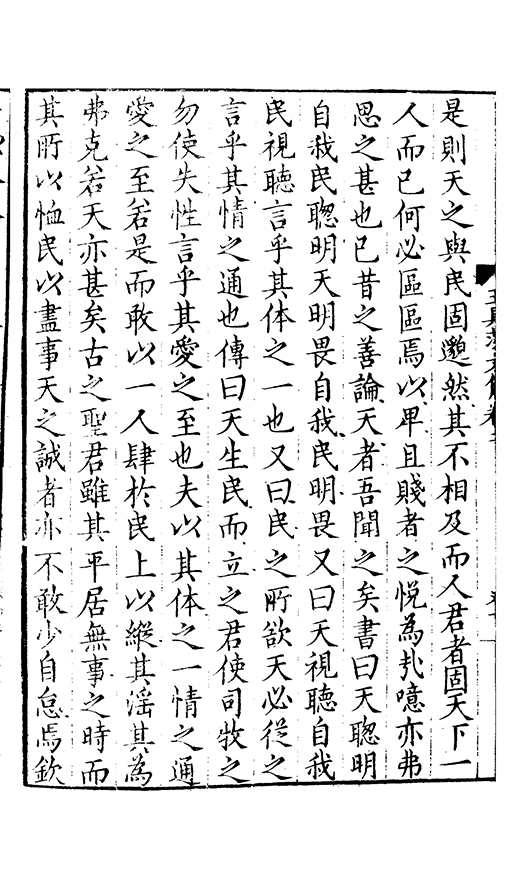 是則天之與民固邈然其不相及而人君者固天下一
人而已何必區區焉以卑且賤者之悅為扎噫亦弗
思之甚也已昔之善論天者吾聞之矣書曰天聦明
自我民聦明天明畏自我民明畏又曰天視聽自我
民視聽言乎其体之一也又曰民之所欲天必從之
言乎其情之通也傳曰天生民而立之君使司牧之
勿使失性言乎其愛之至也夫以其体之一情之通
愛之至若是而敢以一人肆於民上以縱其淫其為
弗克若天亦甚矣古之聖君雖其平居無事之時而
其所以恤民以盡事天之誠者亦不敢少自怠焉欽